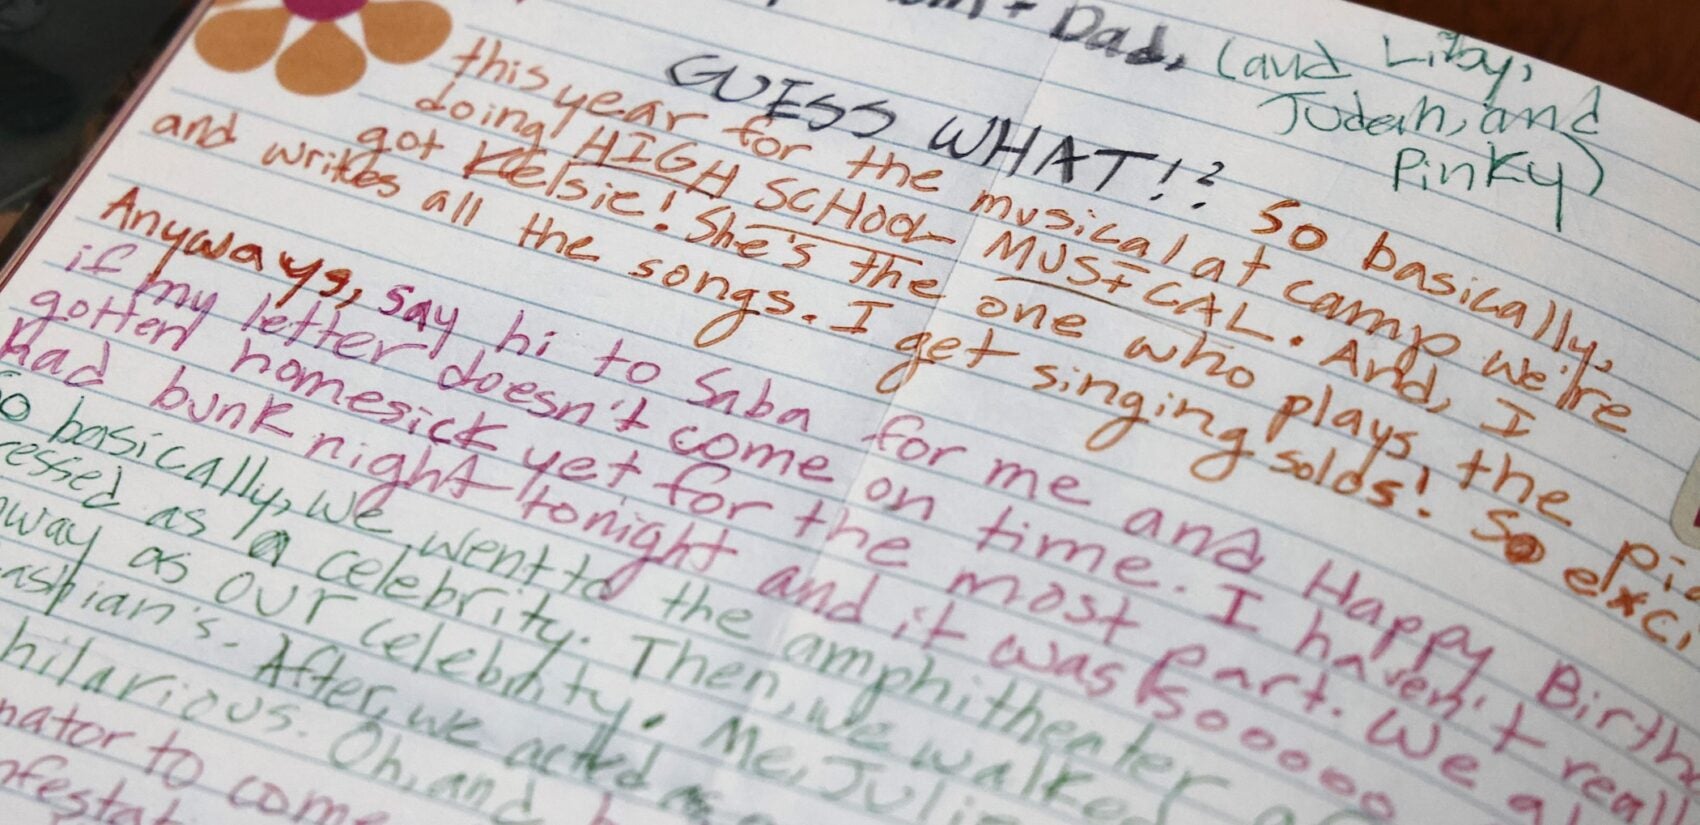 Dad, (and Libby,
Judah, and
Pinky)
GUESS WHAT!? So basically,
this year for the musical at camp we're
doing HIGH SCHOOL MUSICAL. And, I
got Kelsie! She's the one who plays the
and writes all the songs. I get singing solos! So
Anyways, say hi to Saba for me and Happy
if my letter doesn't come on time. I haven't
gotten homesick yet for the most part. We
had bunk night tonight and it was sooooo
So basically, we went to the amphitheater
as a celebrity. Then, we walked
as our celebrity. Me,
After, we acted as
hilarious. Oh, and
to come